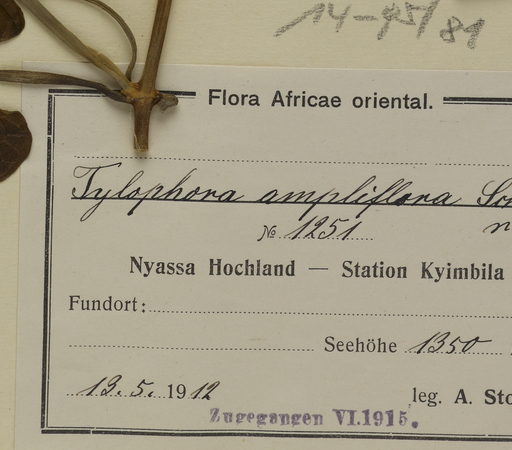 Flora Africae oriental.
Tylophora ampliflora
№ 1251
Nyassa Hochland — Station Kyimbila
Fundort:
Seehöhe 1350
13. 5. 1912 leg. A. Sto
Zugegangen VI.1915.